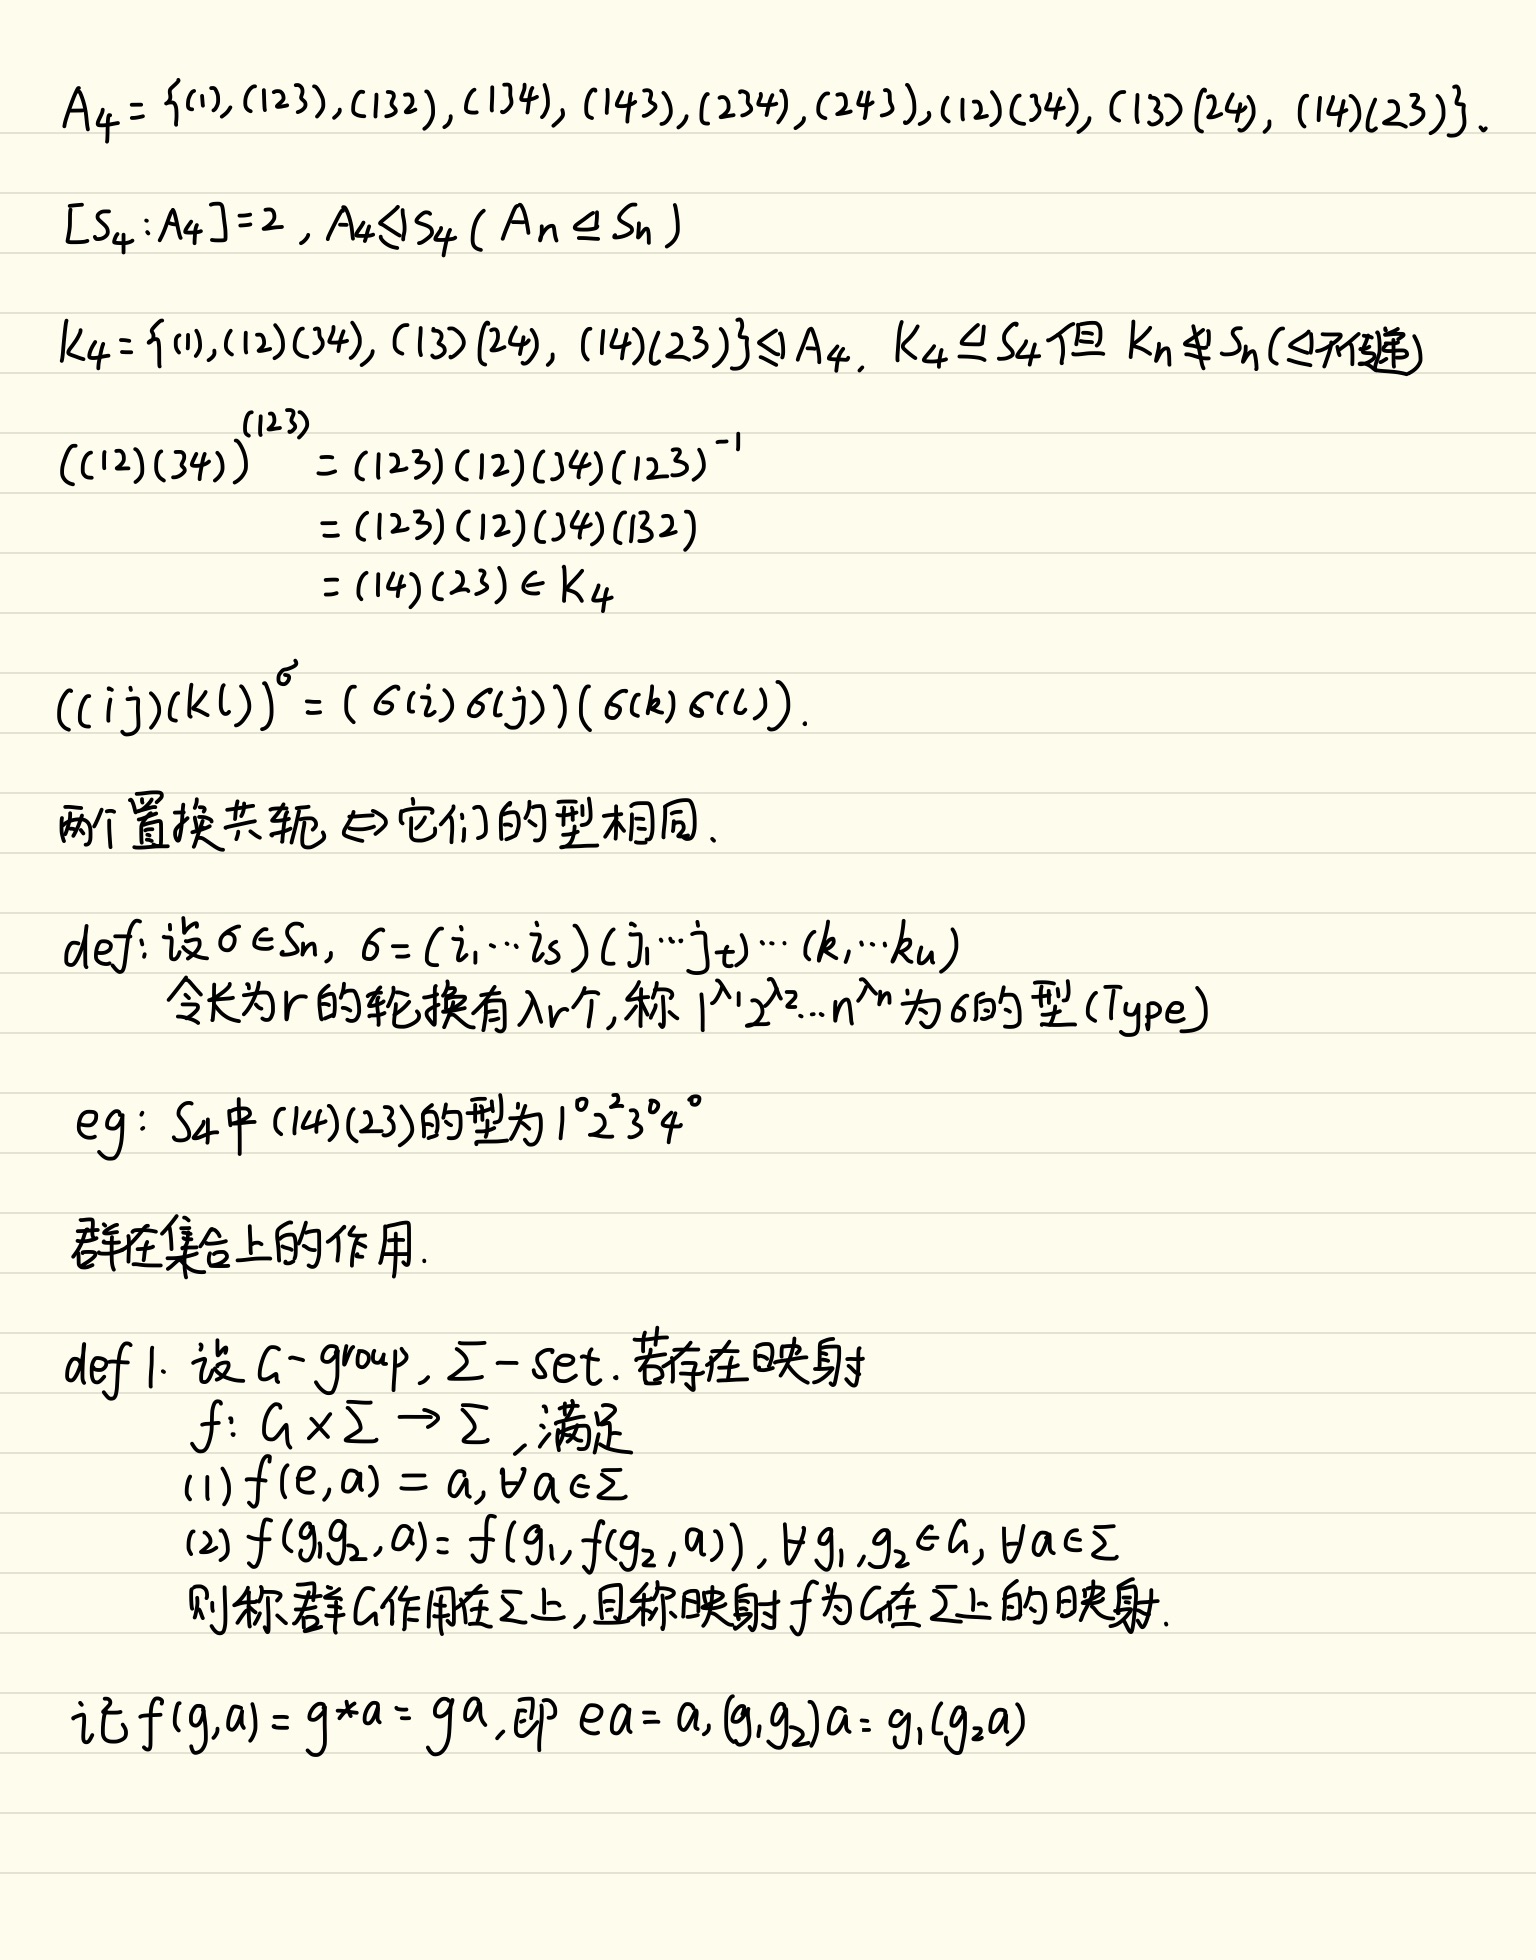 A₄ = {(1), (123), (132), (134), (143), (234), (243), (12)(34), (13)(24), (14)(23)}.
[S₄ : A₄] = 2 , A₄ ⊴ S₄ ( Aₙ ⊴ Sₙ )
K₄ = {(1), (12)(34), (13)(24), (14)(23)} ⊴ A₄. K₄ ⊴ S₄ 但 Kₙ ⋬ Sₙ (⊴不传递)
((12)(34))^(123) = (123)(12)(34)(123)⁻¹
= (123)(12)(34)(132)
= (14)(23) ∈ K₄
((ij)(kl))^σ = (σ(i) σ(j))(σ(k) σ(l)).
两个置换共轭 ⇔ 它们的型相同.
def: 设 σ ∈ Sₙ, σ = (i₁⋯iₛ)(j₁⋯jₜ)⋯(k₁⋯kᵤ)
令长为r的轮换有λr个,称 1^λ₁2^λ₂⋯n^λₙ 为σ的型(Type)
eg: S₄中 (14)(23)的型为 1⁰2²3⁰4⁰
群在集合上的作用.
def 1. 设 G-group, Σ-set. 若存在映射
f: G × Σ → Σ ,满足
(1) f(e,a) = a, ∀a∈Σ
(2) f(g₁g₂,a) = f(g₁,f(g₂,a)), ∀g₁,g₂∈G, ∀a∈Σ
则称群G作用在Σ上,且称映射f为G在Σ上的映射.
记 f(g,a) = g*a = ga, 即 ea = a, (g₁g₂)a = g₁(g₂a)